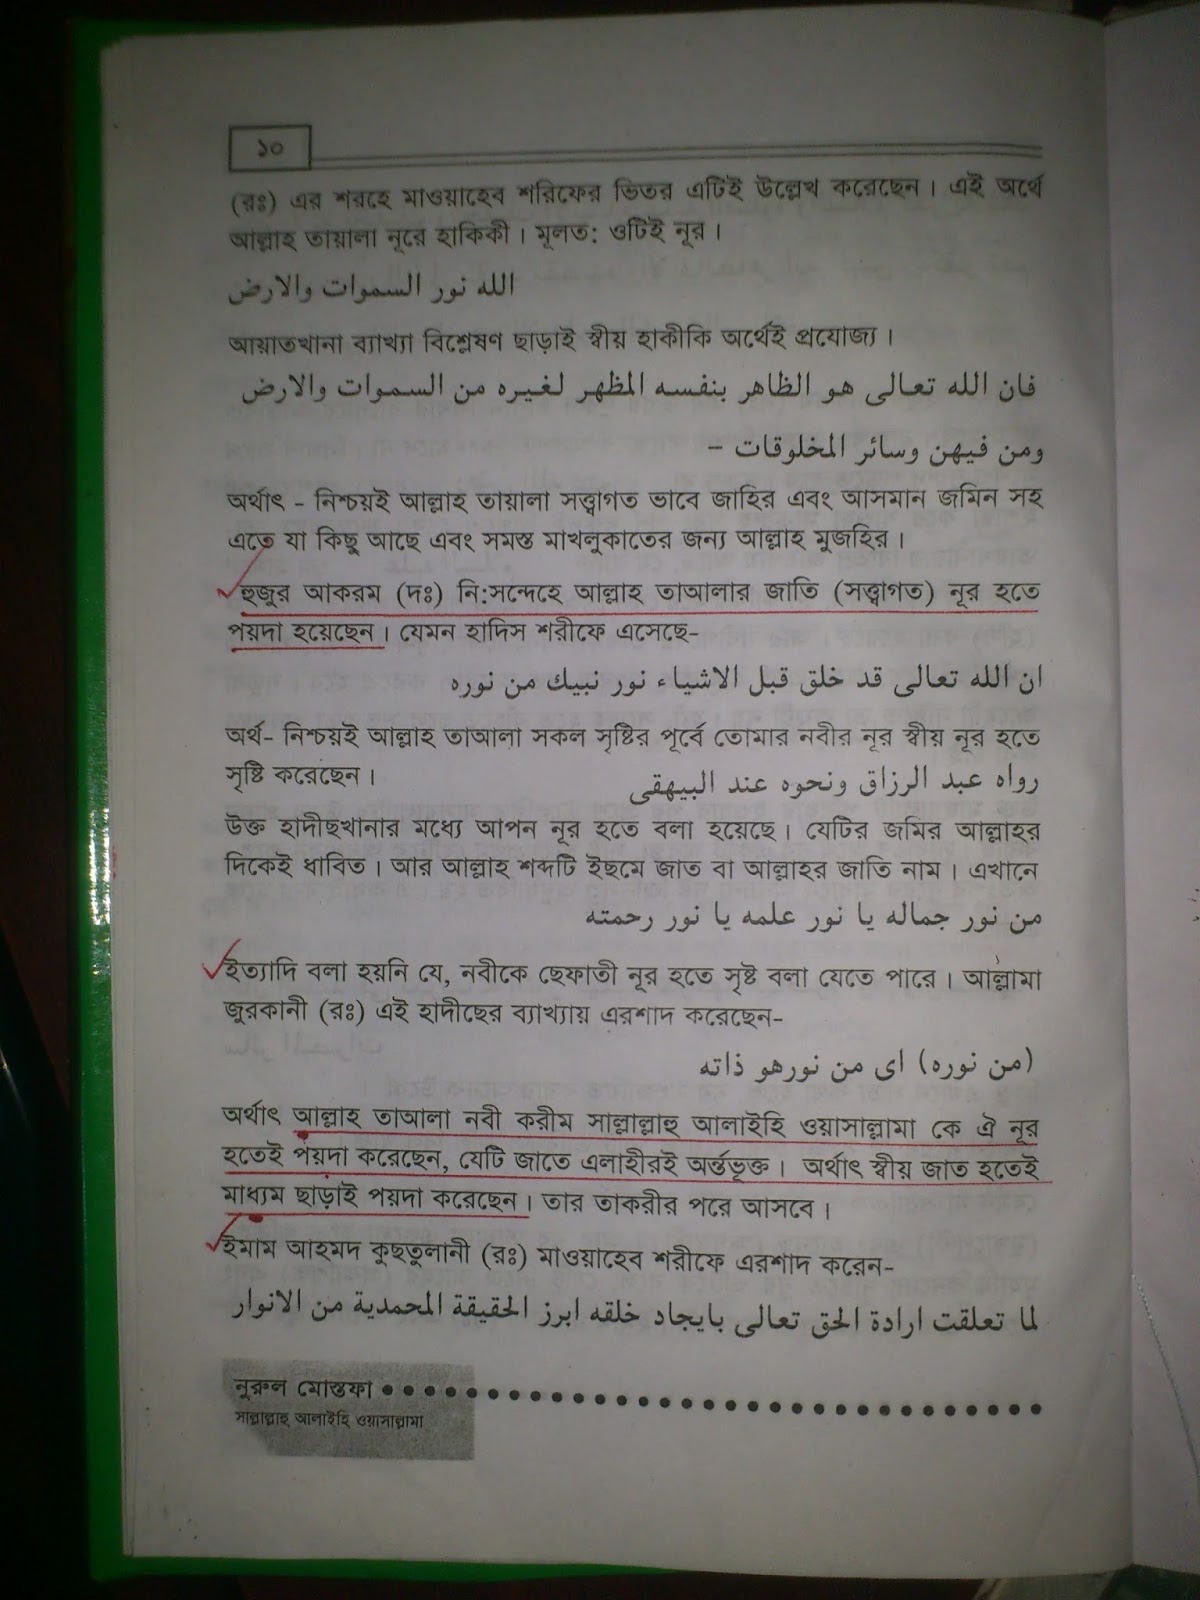 ১০
(রঃ) এর শরহে মাওয়াহেব শরিফের ভিতর এটিই উল্লেখ করেছেন । এই অর্থে
আল্লাহ তায়ালা নূরে হাকিকী । মূলত: ওটিই নূর ।
الله نور السموات والارض
আয়াতখানা ব্যাখ্যা বিশ্লেষণ ছাড়াই স্বীয় হাকীকি অর্থেই প্রযোজ্য ।
فان الله تعالى هو الظاهر بنفسه المظهر لغيره من السموات والارض
ومن فيهن وسائر المخلوقات –
অর্থাৎ - নিশ্চয়ই আল্লাহ তায়ালা সত্ত্বাগত ভাবে জাহির এবং আসমান জমিন সহ
এতে যা কিছু আছে এবং সমস্ত মাখলুকাতের জন্য আল্লাহ মুজহির ।
হুজুর আকরম (দঃ) নি:সন্দেহে আল্লাহ তাআলার জাতি (সত্ত্বাগত) নূর হতে
পয়দা হয়েছেন । যেমন হাদিস শরীফে এসেছে-
ان الله تعالى قد خلق قبل الاشياء نور نبيك من نوره
অর্থ- নিশ্চয়ই আল্লাহ তাআলা সকল সৃষ্টির পূর্বে তোমার নবীর নূর স্বীয় নূর হতে
সৃষ্টি করেছেন । رواه عبد الرزاق ونحوه عند البيهقى
উক্ত হাদীছখানার মধ্যে আপন নূর হতে বলা হয়েছে । যেটির জমির আল্লাহর
দিকেই ধাবিত । আর আল্লাহ শব্দটি ইছমে জাত বা আল্লাহর জাতি নাম । এখানে
من نور جماله يا نور علمه يا نور رحمته
ইত্যাদি বলা হয়নি যে, নবীকে ছেফাতী নূর হতে সৃষ্ট বলা যেতে পারে । আল্লামা
জুরকানী (রঃ) এই হাদীছের ব্যাখ্যায় এরশাদ করেছেন-
(من نوره) اى من نورهو ذاته
অর্থাৎ আল্লাহ তাআলা নবী করীম সাল্লাল্লাহু আলাইহি ওয়াসাল্লামা কে ঐ নূর
হতেই পয়দা করেছেন, যেটি জাতে এলাহীরই অর্ন্তভূক্ত । অর্থাৎ স্বীয় জাত হতেই
মাধ্যম ছাড়াই পয়দা করেছেন । তার তাকরীর পরে আসবে ।
ইমাম আহমদ কুছতুলানী (রঃ) মাওয়াহেব শরীফে এরশাদ করেন-
لما تعلقت ارادة الحق تعالى بايجاد خلقه ابرز الحقيقة المحمدية من الانوار
নুরুল মোস্তফা
সাল্লাল্লাহু আলাইহি ওয়াসাল্লামা